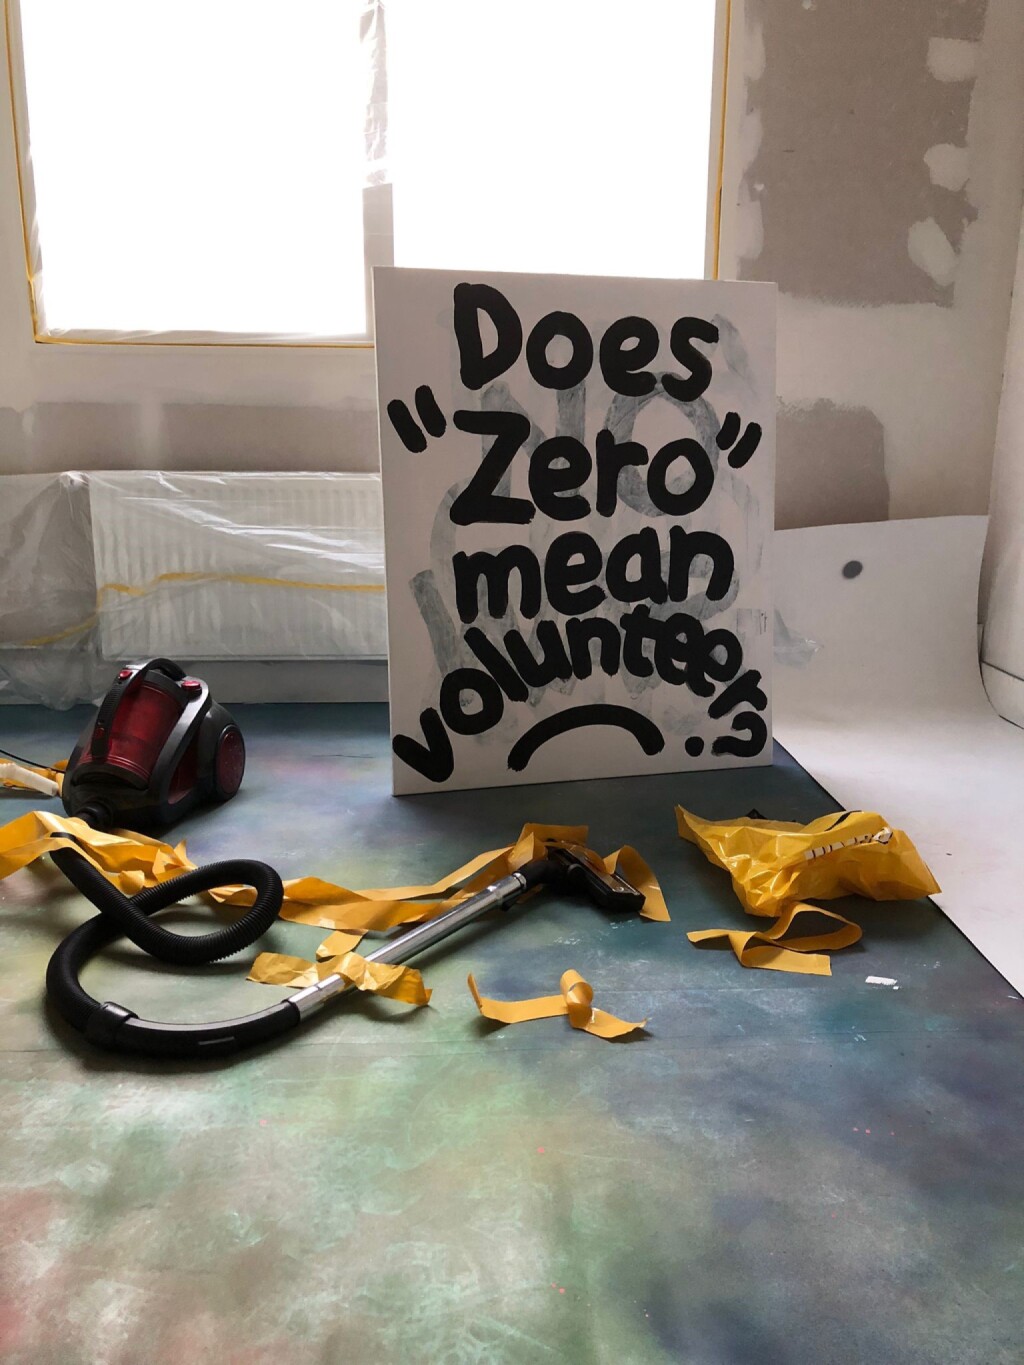 Does
"Zero"
mean
volunteer?
NO